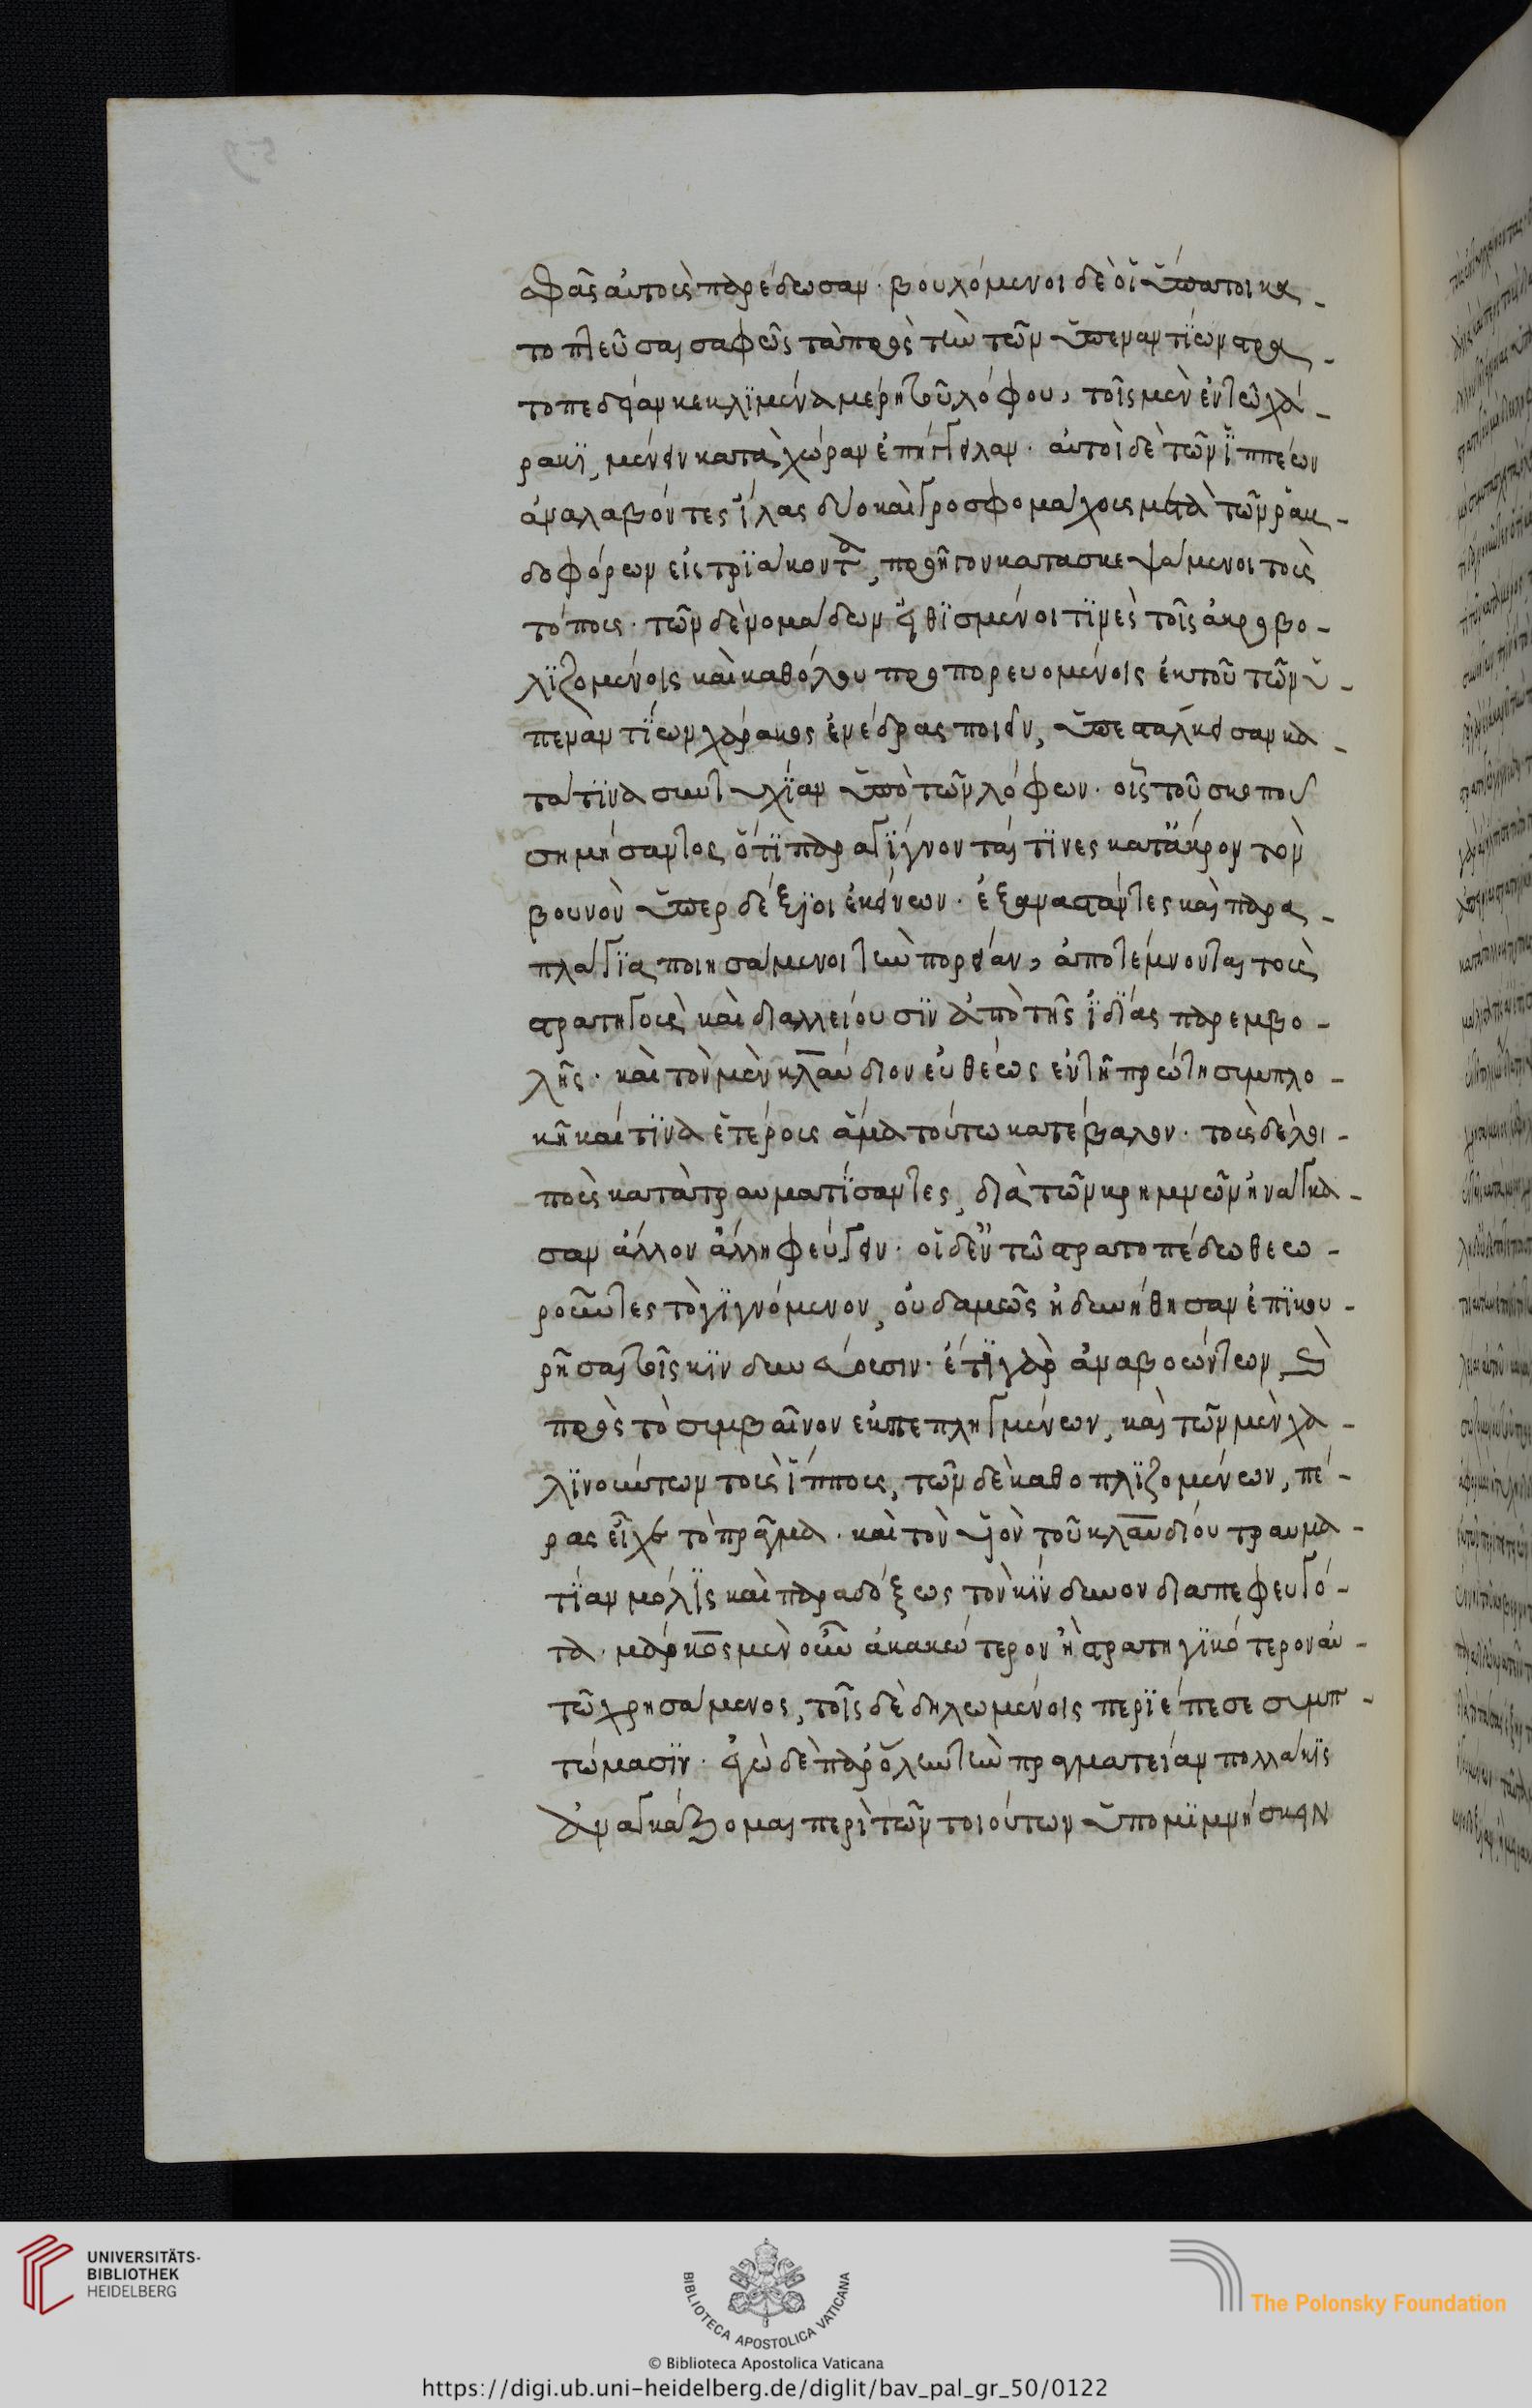 σφᾶς αὐτοὺς παρέδωσαν. βουλόμενοι δὲ οἱ ὕπατοι κα-
τοπτεῦσαι σαφῶς τὰ πρὸς τὴν τῶν ὑπεναντίων στρα-
τοπεδείαν κεκλιμένα μέρη τοῦ λόφου, τοῖς μὲν ἐν τῶ χά-
ρακι, μένειν κατὰ χώραν ἐπήγγειλαν. αὐτοὶ δὲ τῶν ἱππέων
ἀναλαβόντες ἴλας δύο καὶ γροσφομάχους μετὰ τῶν ῥαβ-
δοφόρων εἰς τριάκοντα, προῆγον κατασκεψάμενοι τοὺς
τόπους. τῶν δὲ νομάδων εἰθισμένοι τινὲς τοῖς ἀκροβο-
λιζομένοις καὶ καθόλου προπορευομένοις ἐκ τοῦ τῶν ὑ-
πεναντίων χάρακος ἐνέδρας ποιεῖν, ὑπεστάλκεισαν κα-
τά τινα συντυχίαν ὑπὸ τῶν λόφων. οἷς τοῦ σκοποῦ
σημήσαντος ὅτι παραγίγνονταί τινες κατ' ἄκρον τὸν
βουνὸν ὑπερδέξιοι ἐκείνων. ἐξαναστάντες καὶ παρα-
πλαγία ποιησάμενοι τὴν πορείαν, ἀποτέμνονται τοὺς
στρατηγοὺς καὶ διακλείουσιν ἀπὸ τῆς ἰδίας παρεμβο-
λῆς. καὶ τὸν μὲν κλαύδιον εὐθέως ἐν τῆ πρώτη συμπλο-
κῆ καί τινα ἑτέρους ἅμα τούτω κατέβαλον. τοὺς δὲ λοι-
ποὺς κατατραυματίσαντες, διὰ τῶν κρημνῶν ἠνάγκα-
σαν ἄλλον ἄλλη φεύγειν. οἱ δ' ἐν τῶ στρατοπέδω θεω-
ροῦντες τὸ γιγνόμενον, οὐδαμῶς ἠδυνήθησαν ἐπικου-
ρῆσαι τοῖς κινδυνεύουσιν. ἔτι γὰρ ἀναβοώντων, καὶ
πρὸς τὸ συμβαῖνον ἐκπεπληγμένων, καὶ τῶν μὲν χα-
λινούντων τοὺς ἵππους, τῶν δὲ καθοπλιζομένων, πέ-
ρας εἶχε τὸ πρᾶγμα. καὶ τὸν υἱὸν τοῦ κλαυδίου τραυμα-
τίαν μόλις καὶ παραδόξως τὸν κίνδυνον διαπεφευγό-
τα. μάρκος μὲν οὖν ἀκακώτερον ἢ στρατηγικότερον αὑ-
τῶ χρησάμενος, τοῖς δεδηλωμένοις περιέπεσε συμπ-
τώμασιν. ἐγὼ δὲ παρ' ὅλην τὴν πραγματείαν πολλάκις
ἀναγκάζομαι περὶ τῶν τοιούτων ὑπομιμνήσκειν
UNIVERSITÄTS-
BIBLIOTHEK
HEIDELBERG
BIBLIOTECA APOSTOLICA VATICANA
The Polonsky Foundation
© Biblioteca Apostolica Vaticana
https://digi.ub.uni-heidelberg.de/diglit/bav_pal_gr_50/0122